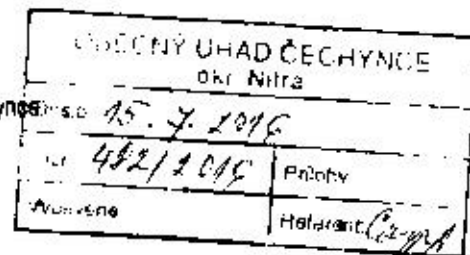 OBECNÝ ÚRAD ČECHYNCE
okr. Nitra
15. 7. 2016
422/2016 Prílohy
Vybavene Referent